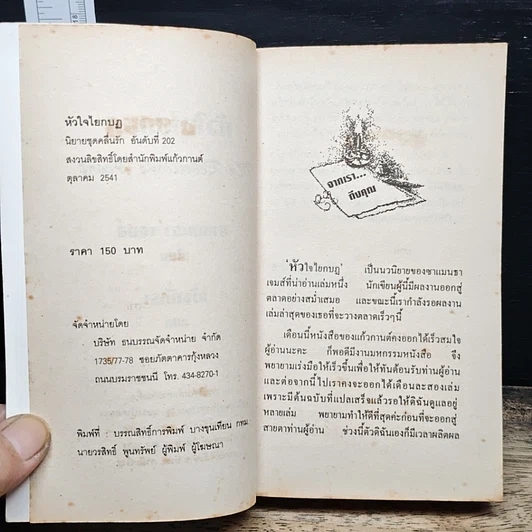 หัวใจไยกบฏ
นิยายชุดคลื่นรัก อันดับที่ 202
สงวนลิขสิทธิ์โดยสำนักพิมพ์แก้วกานต์
ตุลาคม 2541
ราคา 150 บาท
จัดจำหน่ายโดย
บริษัท ธนบรรณจัดจำหน่าย จำกัด
1735/77-78 ซอยภัตตาคารกุ้งหลวง
ถนนบรมราชชนนี โทร. 434-8270-1
พิมพ์ที่ : บรรณสิทธิ์การพิมพ์ บางขุนเทียน กทม.
นายวรสิทธิ์ พูนทรัพย์ ผู้พิมพ์ ผู้โฆษณา
จากเรา...
ถึงคุณ
'หัวใจไยกบฏ' เป็นนวนิยายของซาแมนธา
เจมส์ที่น่าอ่านเล่มหนึ่ง นักเขียนผู้นี้มีผลงานออกสู่
ตลาดอย่างสม่ำเสมอ และขณะนี้เรากำลังรอผลงาน
เล่มล่าสุดของเธอที่จะวางตลาดเร็วๆนี้
เดือนนี้หนังสือของแก้วกานต์คงออกได้เร็วสมใจ
ผู้อ่านนะคะ ก็พอดีมีงานมหกรรมหนังสือ จึง
พยายามเร่งมือให้เร็วขึ้นเพื่อให้ทันต้อนรับท่านผู้อ่าน
และต่อจากนี้ไปเราคงจะออกได้เดือนละสองเล่ม
เพราะมีต้นฉบับที่แปลเสร็จแล้วรอให้ดิฉันดูแลอยู่
หลายเล่ม พยายามทำให้ดีที่สุดค่ะก่อนที่จะออกสู่
สายตาท่านผู้อ่าน ช่วงนี้ตัวดิฉันเองก็มีเวลาผลิตผล